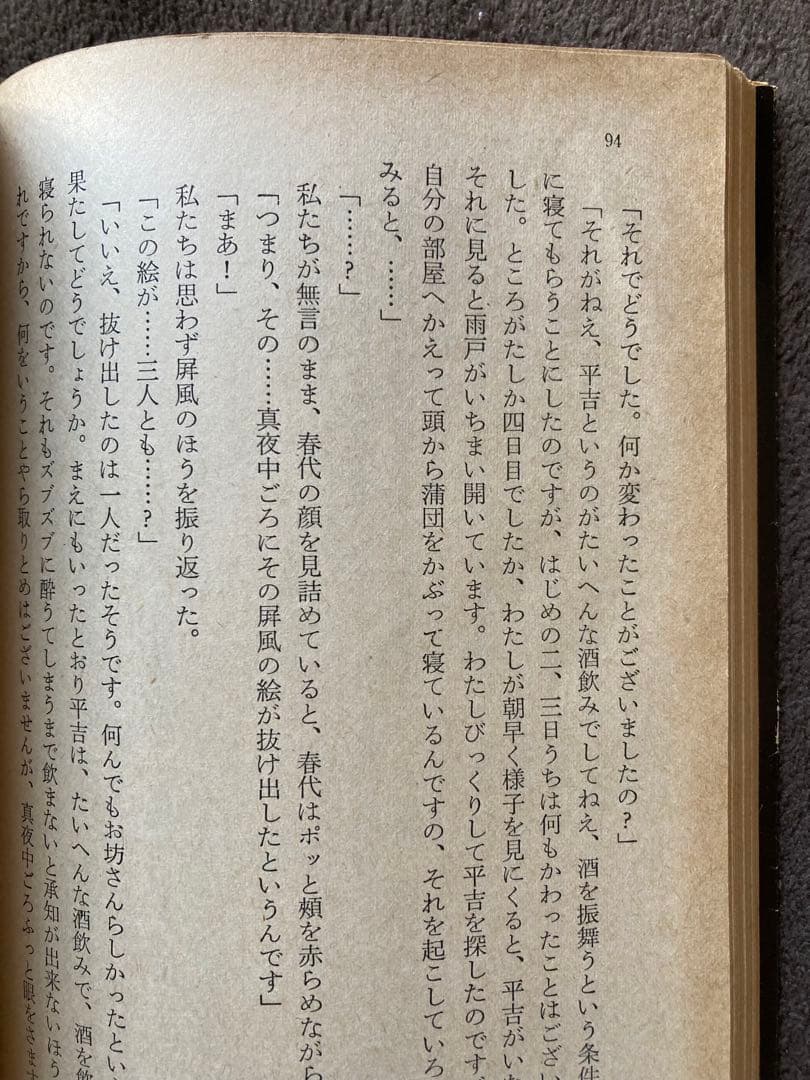 94
「それでどうでした。何か変わったことがございましたの？」
「それがねえ、平吉というのがたいへんな酒飲みでしてねえ、酒を振舞うという条件
に寝てもらうことにしたのですが、はじめの二、三日うちは何もかわったことはござい
した。ところがたしか四日目でしたか、わたしが朝早く様子を見にくると、平吉がいな
それに見ると雨戸がいちまい開いています。わたしびっくりして平吉を探したのです
自分の部屋へかえって頭から蒲団をかぶって寝ているんですの、それを起こしていろ
みると、……」
「……？」
私たちが無言のまま、春代の顔を見詰めていると、春代はポッと頰を赤らめながら
「つまり、その……真夜中ごろにその屛風の絵が抜け出したというんです」
「まあ！」
私たちは思わず屛風のほうを振り返った。
「この絵が……三人とも……？」
「いいえ、抜け出したのは一人だったそうです。何んでもお坊さんらしかったとい
果たしてどうでしょうか。まえにもいったとおり平吉は、たいへんな酒飲みで、酒を飲
寝られないのです。それもズブズブに酔うてしまうまで飲まないと承知が出来ないほう
れですから、何をいうことやら取りとめはございませんが、真夜中ごろふっと眼をさます